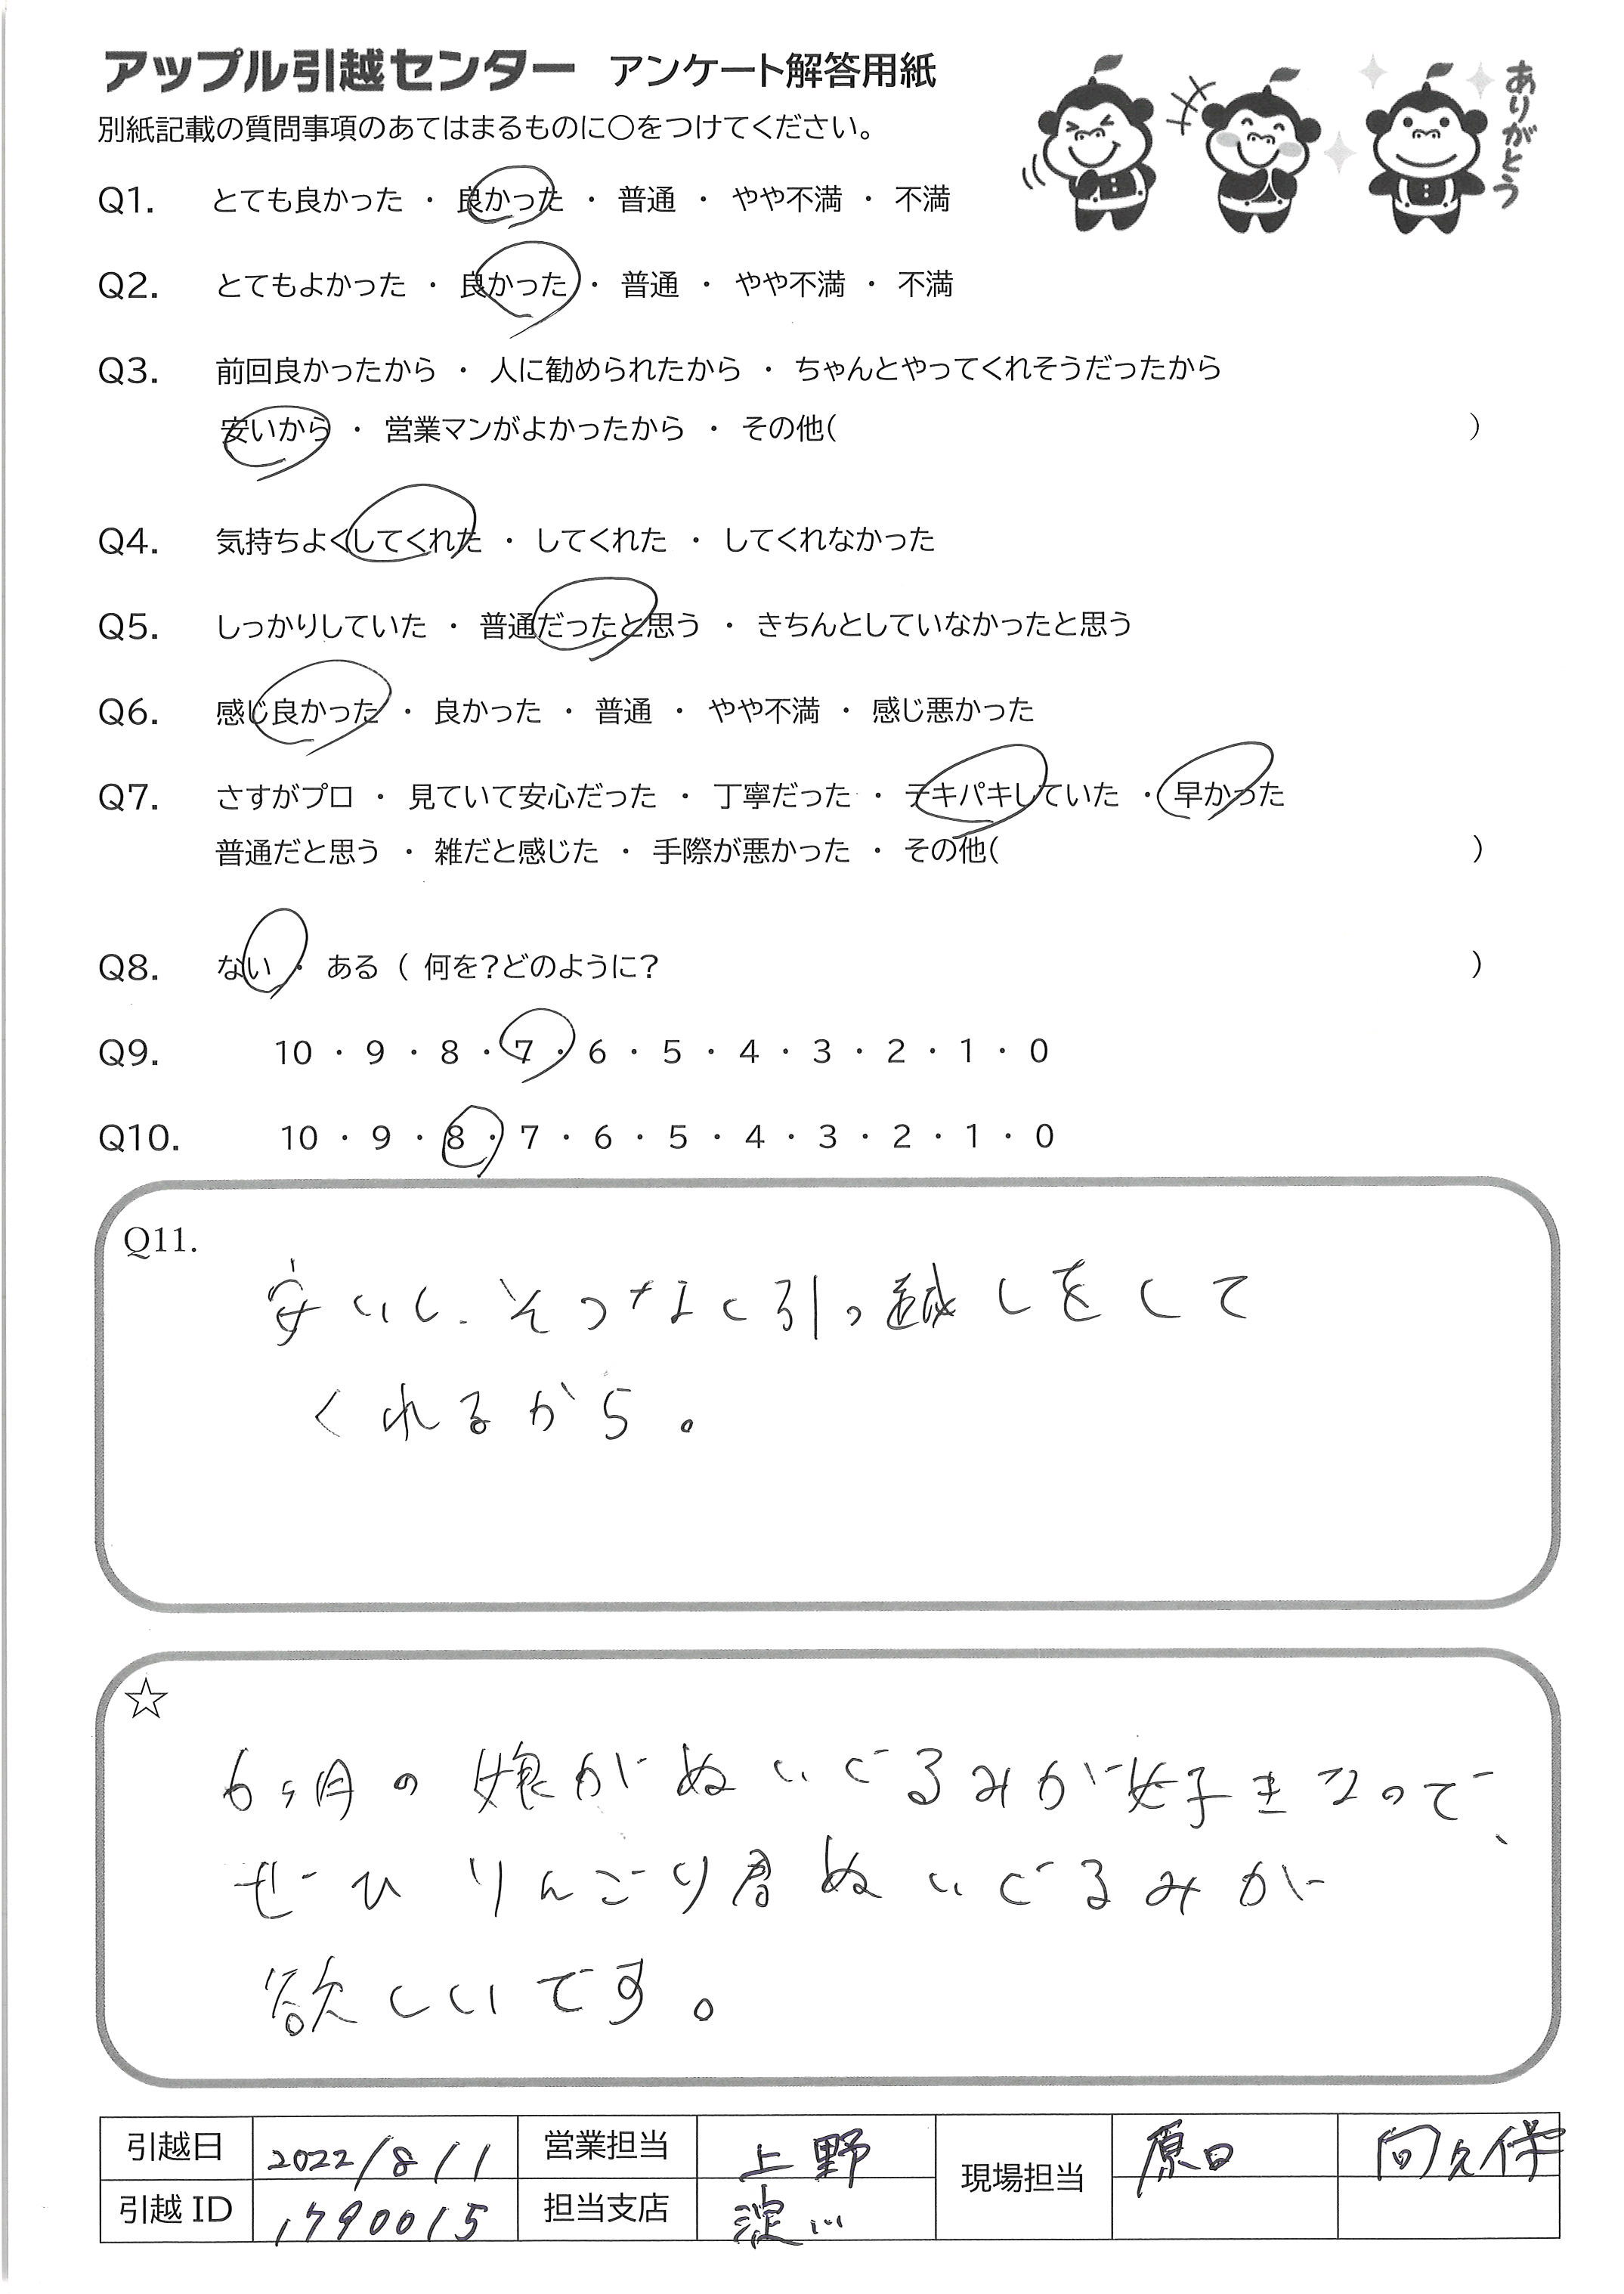 アップル引越センター アンケート解答用紙
ありがとう
別紙記載の質問事項のあてはまるものに〇をつけてください。
Q1. とても良かった ・ 良かった ・ 普通 ・ やや不満 ・ 不満
Q2. とてもよかった ・ 良かった ・ 普通 ・ やや不満 ・ 不満
Q3. 前回良かったから ・ 人に勧められたから ・ ちゃんとやってくれそうだったから
安いから ・ 営業マンがよかったから ・ その他( )
Q4. 気持ちよくしてくれた ・ してくれた ・ してくれなかった
Q5. しっかりしていた ・ 普通だったと思う ・ きちんとしていなかったと思う
Q6. 感じ良かった ・ 良かった ・ 普通 ・ やや不満 ・ 感じ悪かった
Q7. さすがプロ ・ 見ていて安心だった ・ 丁寧だった ・ テキパキしていた ・ 早かった
普通だと思う ・ 雑だと感じた ・ 手際が悪かった ・ その他( )
Q8. ない ・ ある ( 何を?どのように? )
Q9. 10 ・ 9 ・ 8 ・ 7 ・ 6 ・ 5 ・ 4 ・ 3 ・ 2 ・ 1 ・ 0
Q10. 10 ・ 9 ・ 8 ・ 7 ・ 6 ・ 5 ・ 4 ・ 3 ・ 2 ・ 1 ・ 0
Q11.
安いし、そつなく引っ越しをして
くれるから。
☆
6ヶ月の娘がぬいぐるみが好きなので、
ぜひりんごり君ぬいぐるみが
欲しいです。
引越日 2022/8/1 営業担当 上野 現場担当 原田
引越ID 1790015 担当支店 淀川